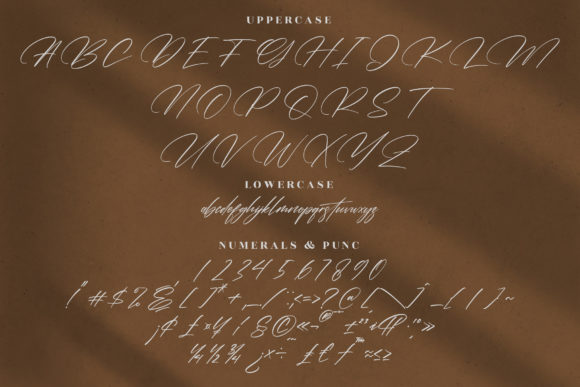 UPPERCASE
A B C D E F G H I J K L M
N O P Q R S T
U V W X Y Z
LOWERCASE
abcdefghijklmnopqrstuvwxyz
NUMERALS & PUNC
1 2 3 4 5 6 7 8 9 0
! " # $ % & ( ) * + , - . / : ; < = > ? @ [ \ ] _ { | } ~